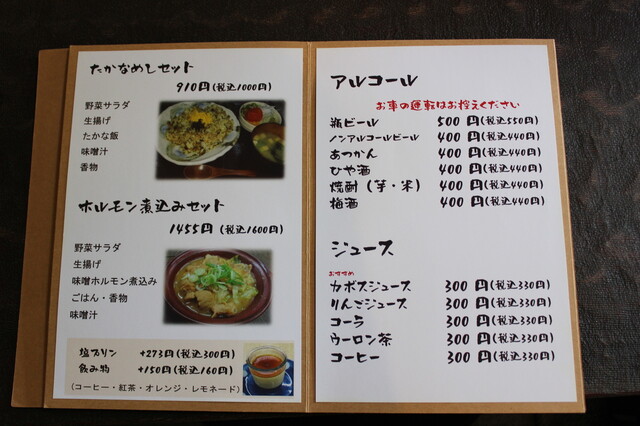 たかなめしセット
910円(税込1000円)
野菜サラダ
生揚げ
たかな飯
味噌汁
香物
ホルモン煮込みセット
1455円 (税込1600円)
野菜サラダ
生揚げ
味噌ホルモン煮込み
ごはん・香物
味噌汁
塩プリン +273円(税込300円)
飲み物 +150円(税込160円)
(コーヒー・紅茶・オレンジ・レモネード)
アルコール
お車の運転はお控えください
瓶ビール 500 円(税込550円)
ノンアルコールビール 400 円(税込440円)
あつかん 400 円(税込440円)
ひや酒 400 円(税込440円)
焼酎（芋・米） 400 円(税込440円)
梅酒 400 円(税込440円)
ジュース
おすすめ
カボスジュース 300 円(税込330円)
りんごジュース 300 円(税込330円)
コーラ 300 円(税込330円)
ウーロン茶 300 円(税込330円)
コーヒー 300 円(税込330円)